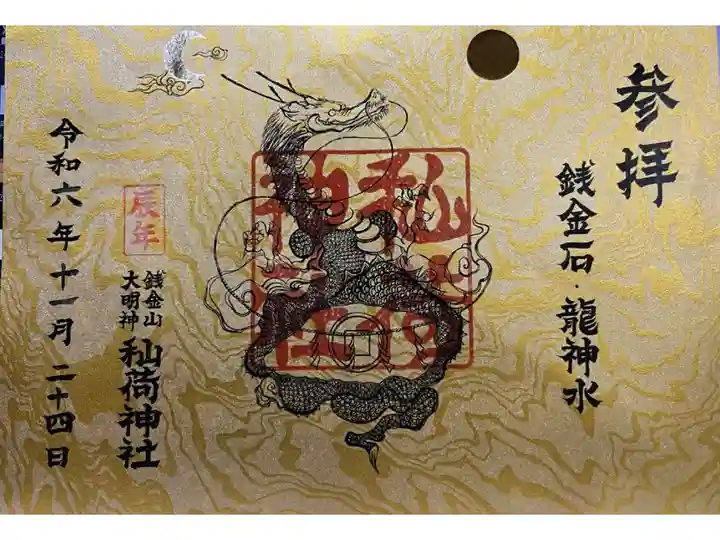 参拝
銭金石・龍神水
秈荷神社
辰年
銭金山
大明神
秈荷神社
令和六年十一月二十四日